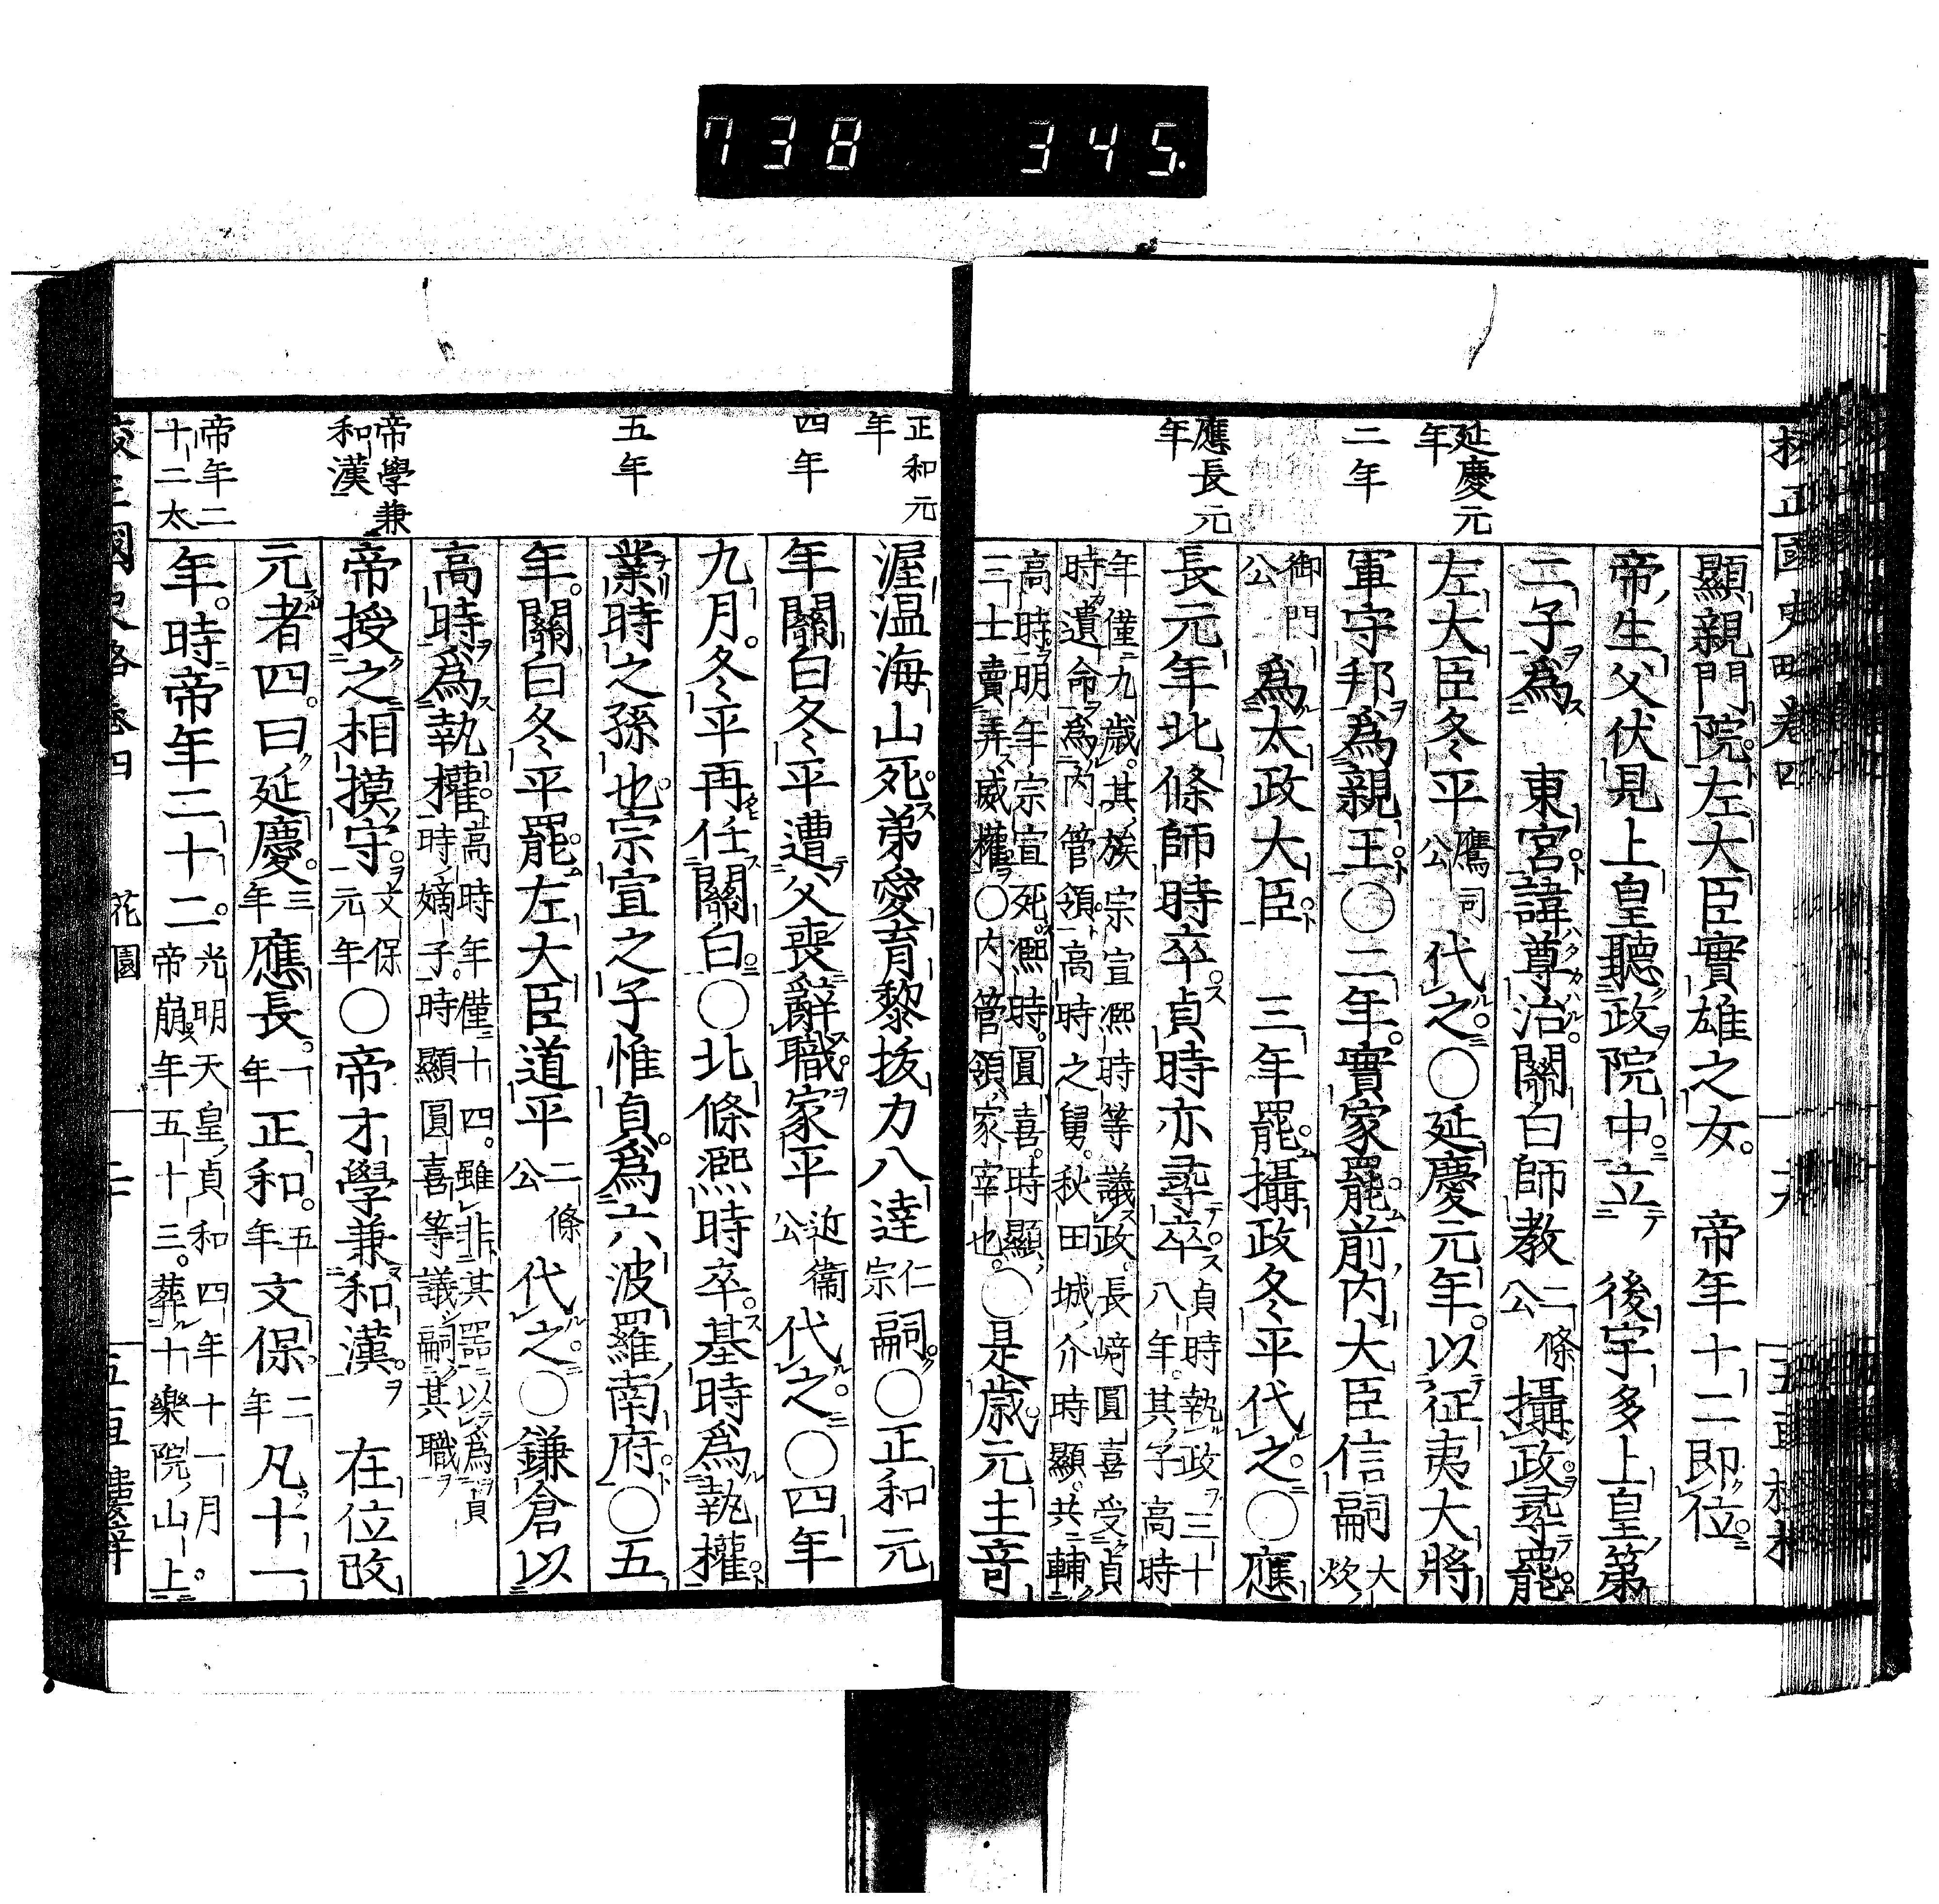 738 345.
校正國史略卷四
顯親門院。左大臣實雄之女。 帝年十二即位。
帝生。父伏見上皇聽政院中。立 後宇多上皇第
二子爲 東宮。諱尊治。關白師教二條公攝政。尋罷。
延慶元年
左大臣冬平鷹司公代之。〇延慶元年。以征夷大將
二年
軍守邦爲親王。〇二年。實家罷。前内大臣信嗣大炊
御門公爲太政大臣。 三年罷。攝政冬平代之。〇應
應長元年
長元年北條師時卒。貞時亦尋卒。貞時執政三十八年。其子高時
年僅九歳。其族宗宣凞時等議政。長崎圓喜受貞時遺命爲内管領。高時之舅。秋田城介時顯。共輔
高時。明年宗宣死。凞時。圓喜。時顯。三士賣弄威權。〇内管領家宰也。〇是歳。元主竒
正和元年
渥温海山死。弟愛育黎抜力八達仁宗嗣。〇正和元
四年
年關白冬平遭父喪辭職。家平近衞公代之。〇四年
九月。冬平再任關白。〇北條凞時卒。基時爲執權。
五年
業時之孫也。宗宣之子惟貞。爲六波羅南府。〇五
年。關白冬平罷。左大臣道平二條公代之。〇鎌倉以
高時爲執權。高時時年僅十四。雖非其器以爲貞時嫡子。時顯圓喜等議嗣其職
帝學兼和漢
帝授之相摸守。文保元年〇帝才學兼和漢。 在位改
元者四。曰延慶。三年應長。一年正和。五年文保。二年凡十一
帝年二十二太
年。時帝年二十二。光明天皇貞和四年十一月。帝崩年五十三。葬十樂院山上
花園